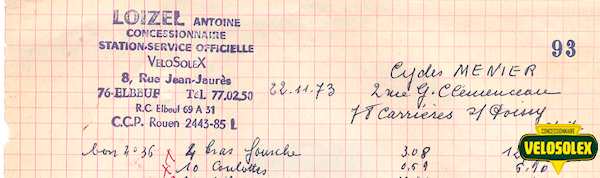 LOIZEL ANTOINE
CONCESSIONNAIRE
STATION-SERVICE OFFICIELLE
VELOSOLEX
8, Rue Jean-Jaurès
76-ELBEUF Tél. 77.02.50
R.C. Elbeuf 69 A 31
C.C.P. Rouen 2443-85 L
93
22.11.73
Cycles MENIER
2 rue G. Clemenceau
78 Carrières s/ Poissy
bon 2036 4 bras fourche 3.08
10 Culottes 0,59 5,90
CONCESSIONNAIRE
VELOSOLEX